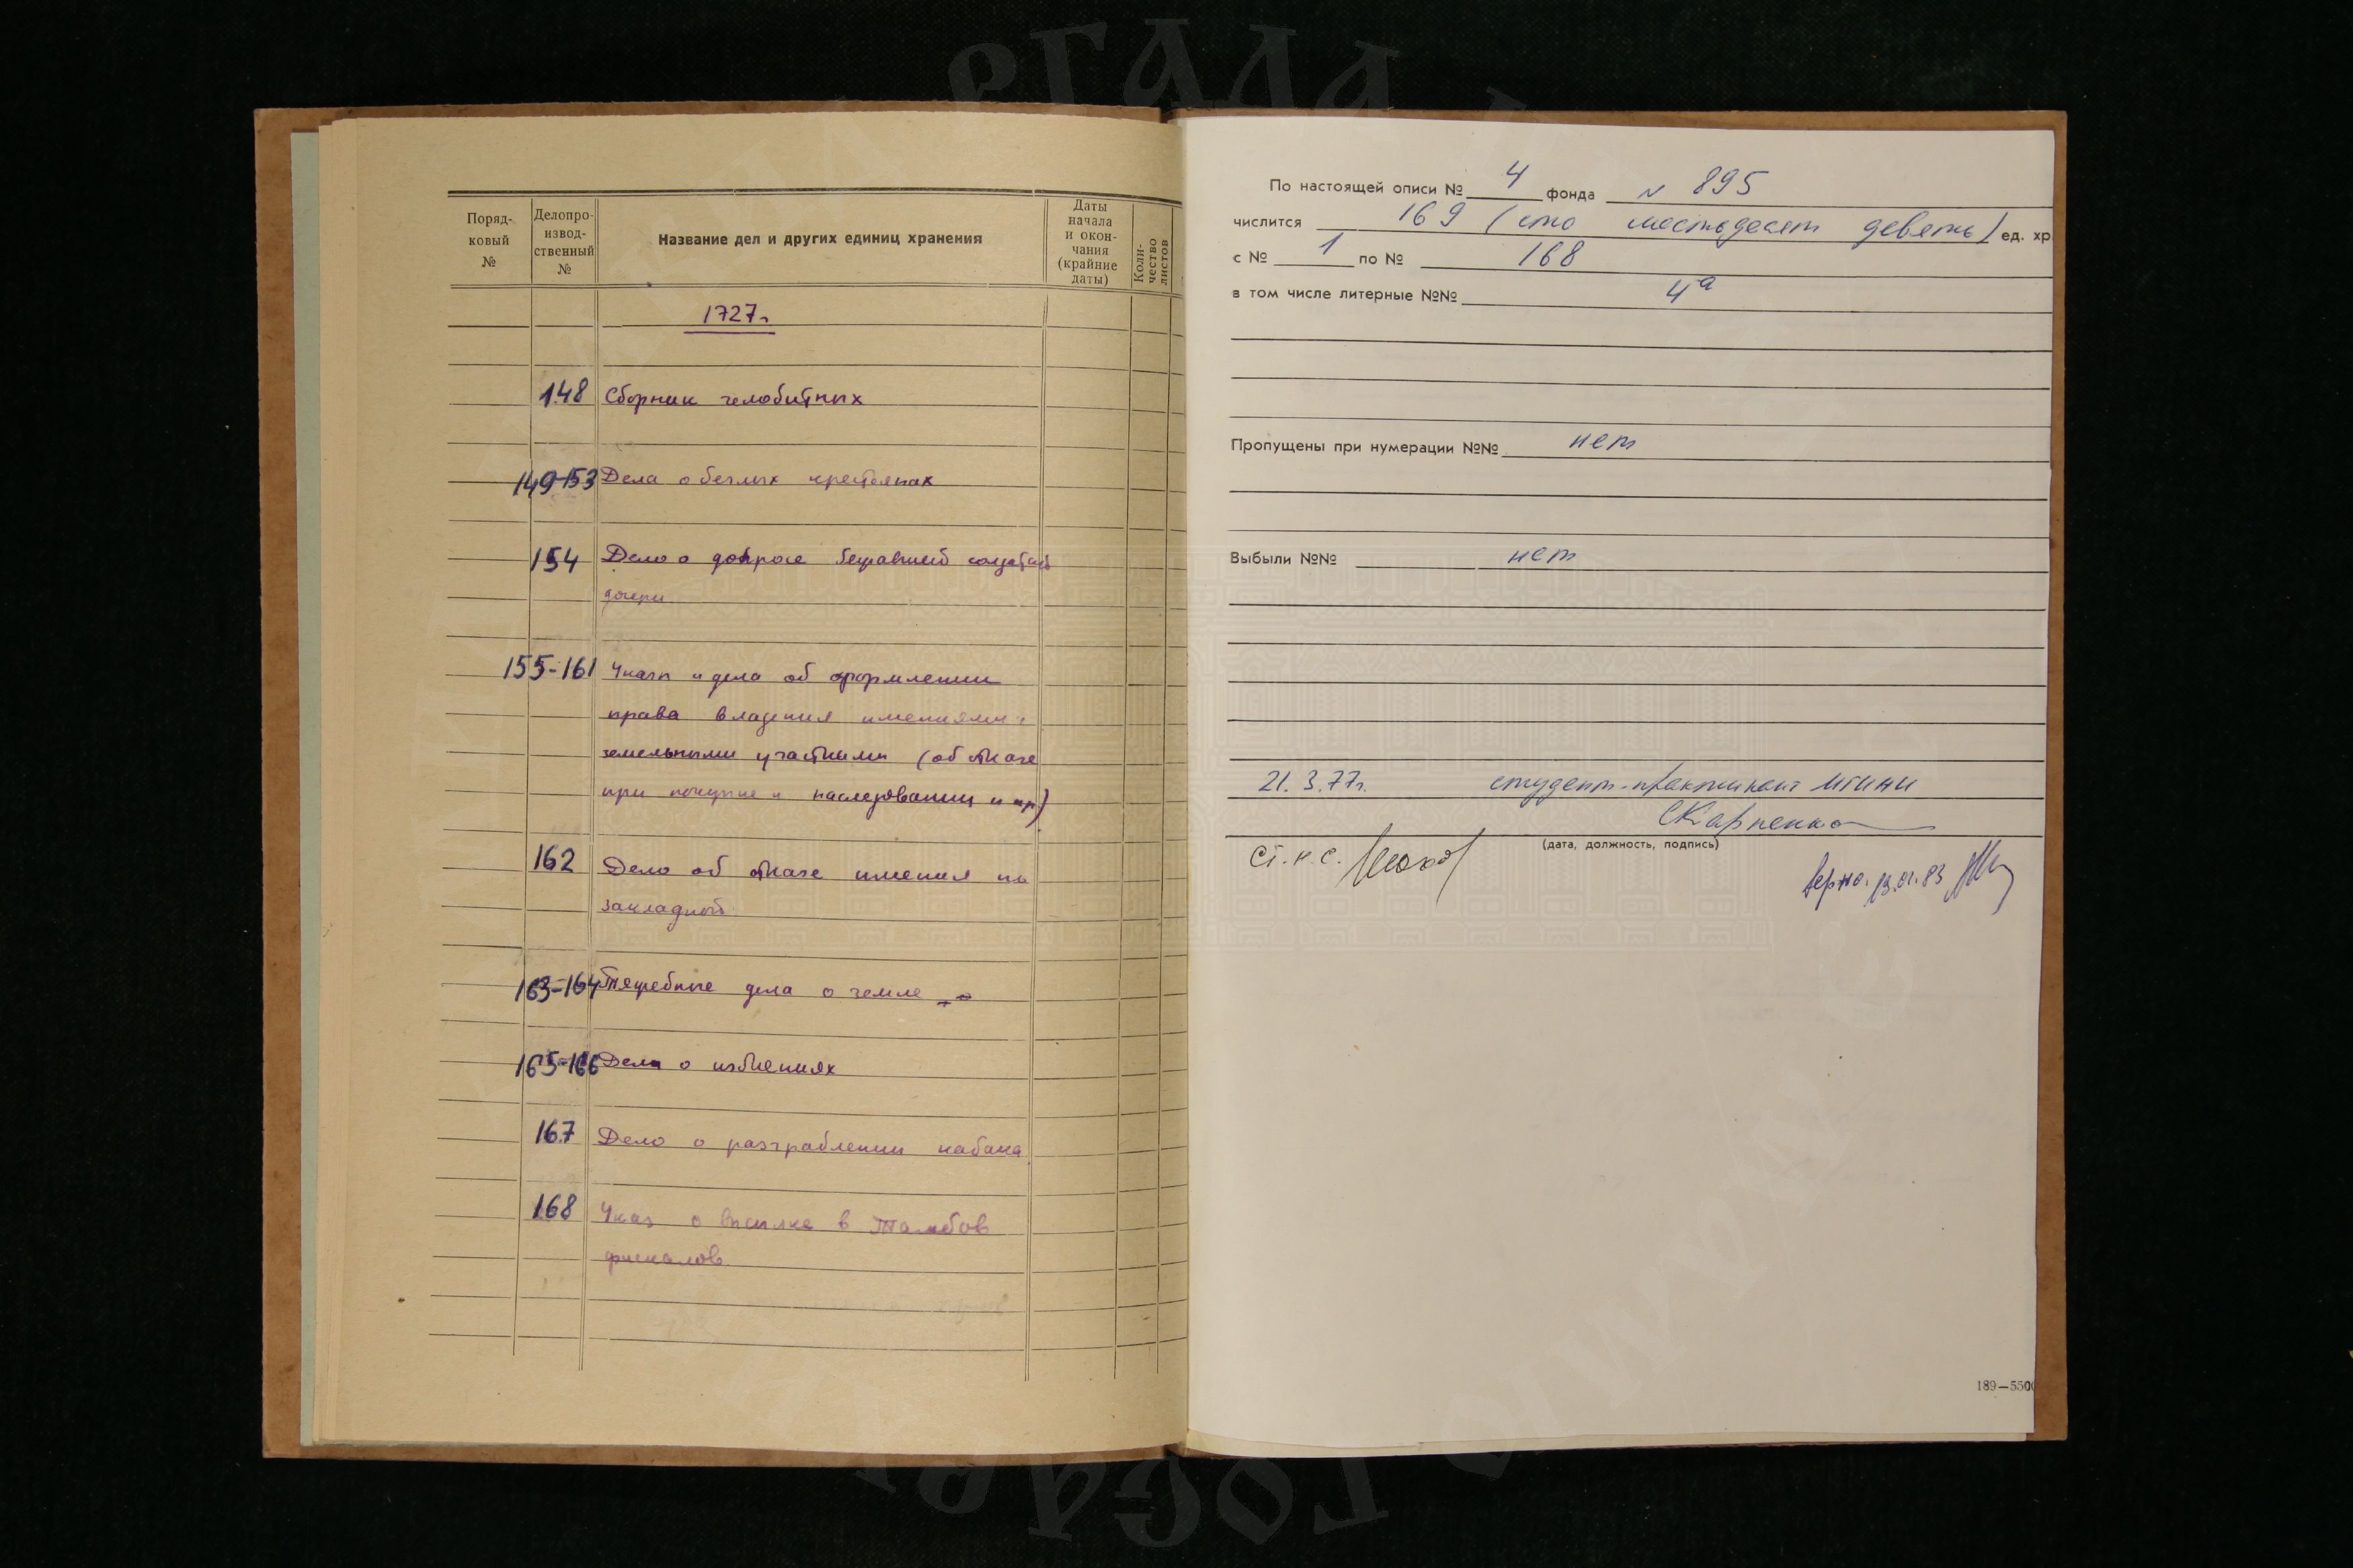 Поряд-
ковый
№
Делопро-
извод-
ственный
№
Название дел и других единиц хранения
Даты
начала
и окон-
чания
(крайние
даты)
Коли-
чество
листов
1727г.
148 Сборник челобитных
149-153 Дела о беглых крестьянах
154 Дело о допросе бежавшей солдатской
дочери
155-161 Указы и дела об оформлении
права владения имениями и
земельными участками (об отказе
при покупке и наследовании и пр)
162 Дело об отказе имения по
закладной
163-164 Тяжебные дела о земле
165-166 Дела о избиениях
167 Дело о разграблении кабака
168 Указ о высылке в Тамбов
фискалов
По настоящей описи № 4 фонда № 895
числится 169 (сто шестьдесят девять) ед. хр
с № 1 по № 168
в том числе литерные №№ 4а
Пропущены при нумерации №№ нет
Выбыли №№ нет
21.3.77г. студент-практикант МГИАИ
СКарпенко
(дата, должность, подпись)
Ст. н. с.
Верно. 13.01.83
189—550
РГАДА